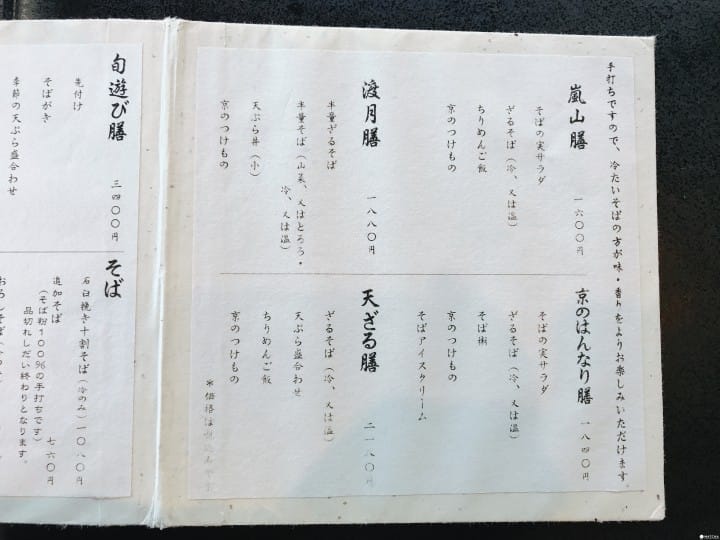 手打ちですので、冷たいそばの方が味・香りをよりお楽しみいただけます。
嵐山膳 一六〇〇円
そばの実サラダ
ざるそば(冷、又は温)
ちりめんご飯
京のつけもの
渡月膳 一八八〇円
半量ざるそば
半量そば(山菜、又はとろろ・
冷、又は温)
天ぷら丼(小)
京のつけもの
京のはんなり膳 一八四〇円
そばの実サラダ
ざるそば(冷、又は温)
そば
京のつけもの
そばアイスクリーム
天ざる膳 二一八〇円
ざるそば(冷、又は温)
天ぷら盛合わせ
ちりめんご飯
京のつけもの
*価格は
旬遊び膳 三四〇〇円
先付け
そばがき
季節の天ぷら盛合わせ
そば
石臼挽き十割そば(冷のみ)一〇八〇円
追加そば 七六〇円
(そば粉100%の手打ちです)
品切れしだい終わりとなります。
おろしそば